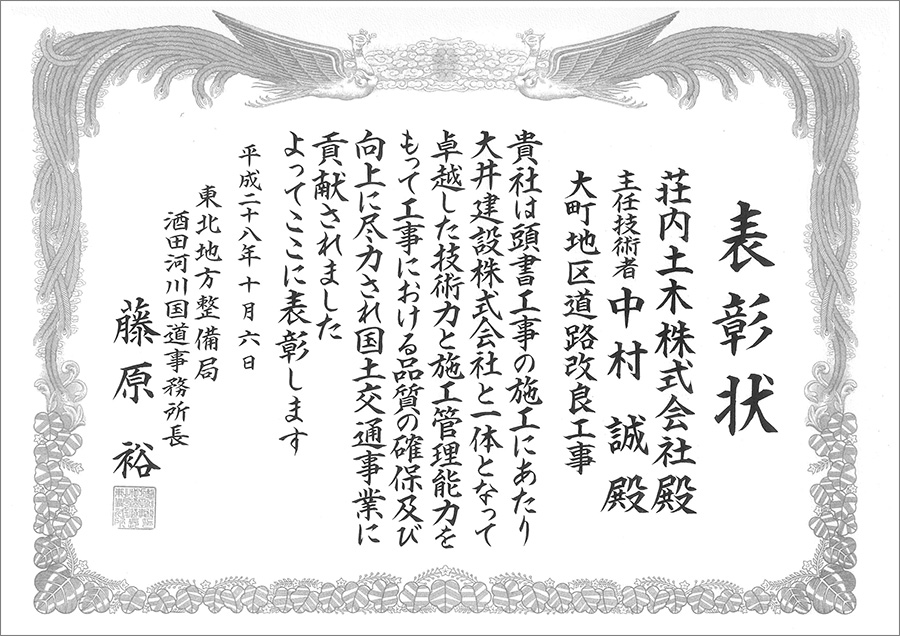 表彰状
荘内土木株式会社殿
主任技術者 中村 誠殿
大町地区道路改良工事
貴社は頭書工事の施工にあたり
大井建設株式会社と一体となって
卓越した技術力と施工管理能力を
もって工事における品質の確保及び
向上に尽力され国土交通事業に
貢献されました
よってここに表彰します
平成二十八年十月六日
東北地方整備局
酒田河川国道事務所長
藤原 裕